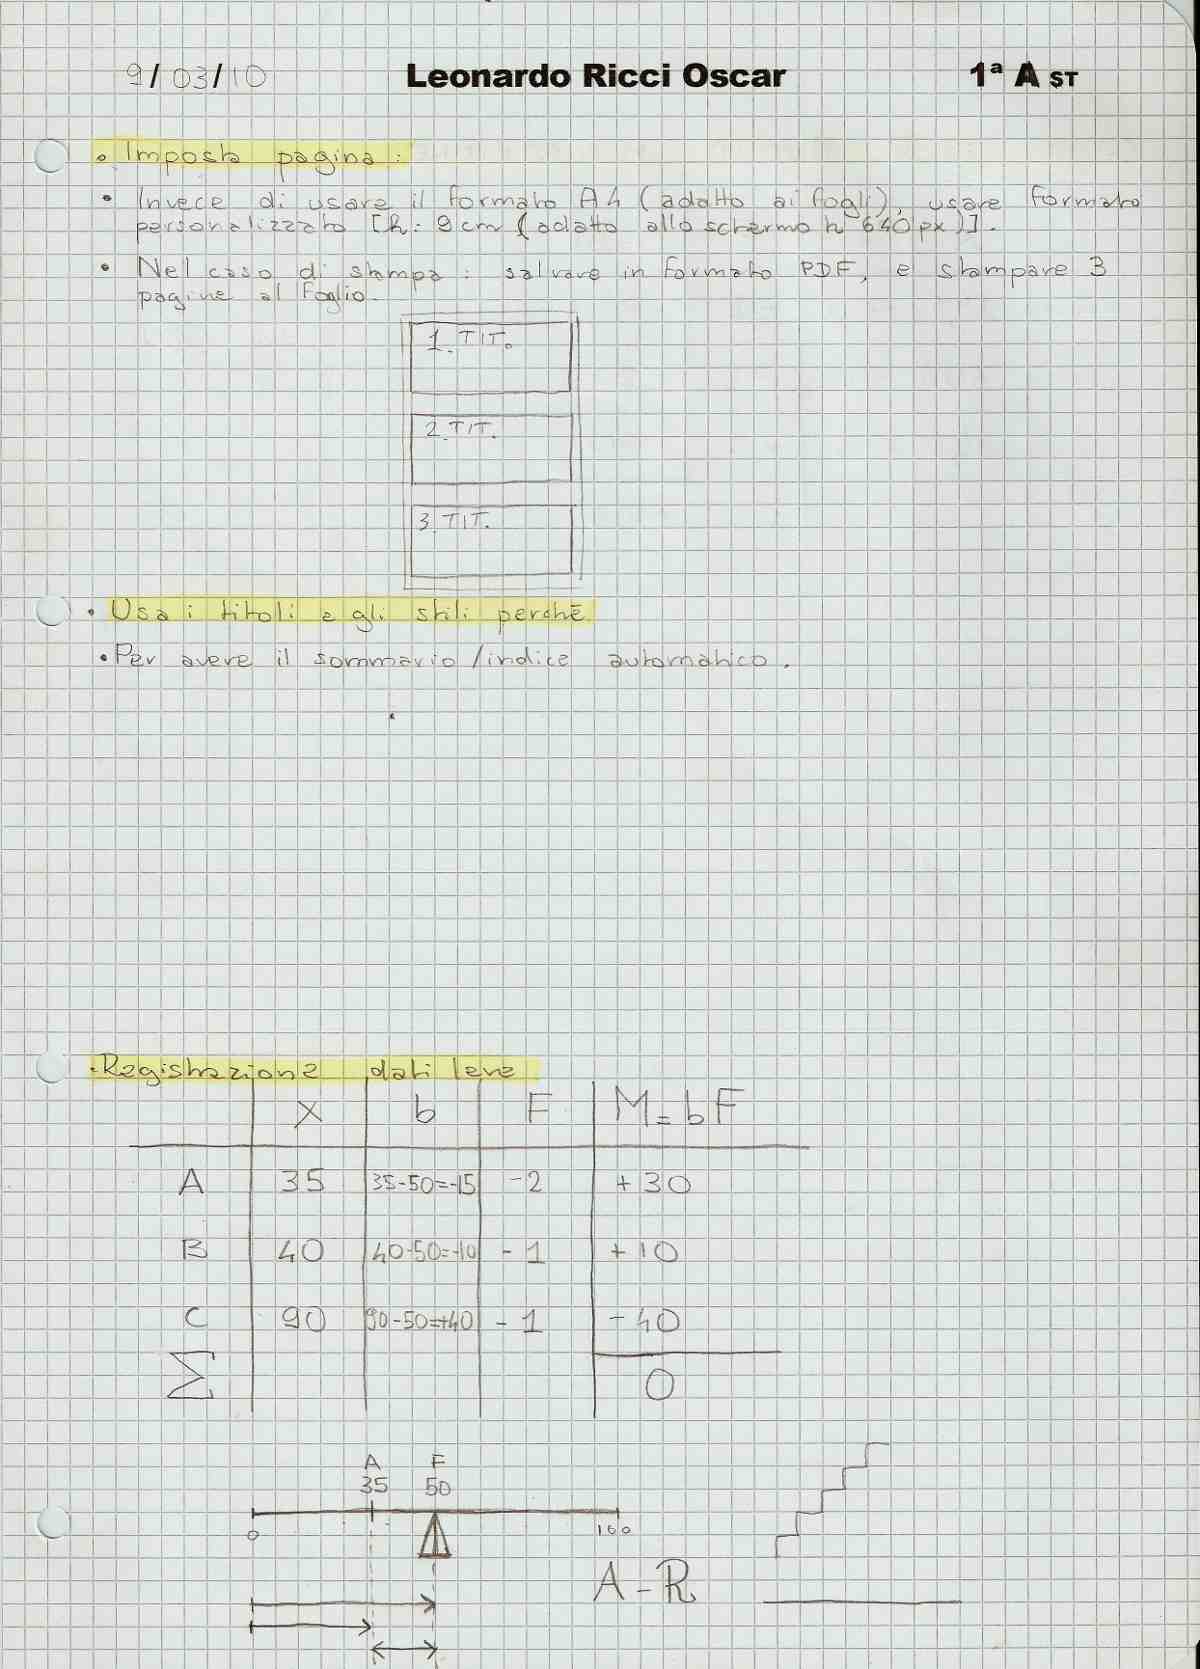 9/03/10 Leonardo Ricci Oscar 1ª A ST
• Imposta pagina:
• Invece di usare il formato A4 (adatto ai fogli), usare formato
personalizzato [h: 9cm (adatto allo schermo h 640px)].
• Nel caso di stampa: salvare in formato PDF, e stampare 3
pagine al foglio.
1. TIT.
2. TIT.
3. TIT.
• Usa i titoli e gli stili perchè
• Per avere il sommario/indice automatico.
• Registrazione dati leve
X b F M=bF
A 35 35-50=-15 -2 +30
B 40 40-50=-10 -1 +10
C 90 90-50=+40 -1 -40
Σ 0
A F
35 50
0 100
A-R